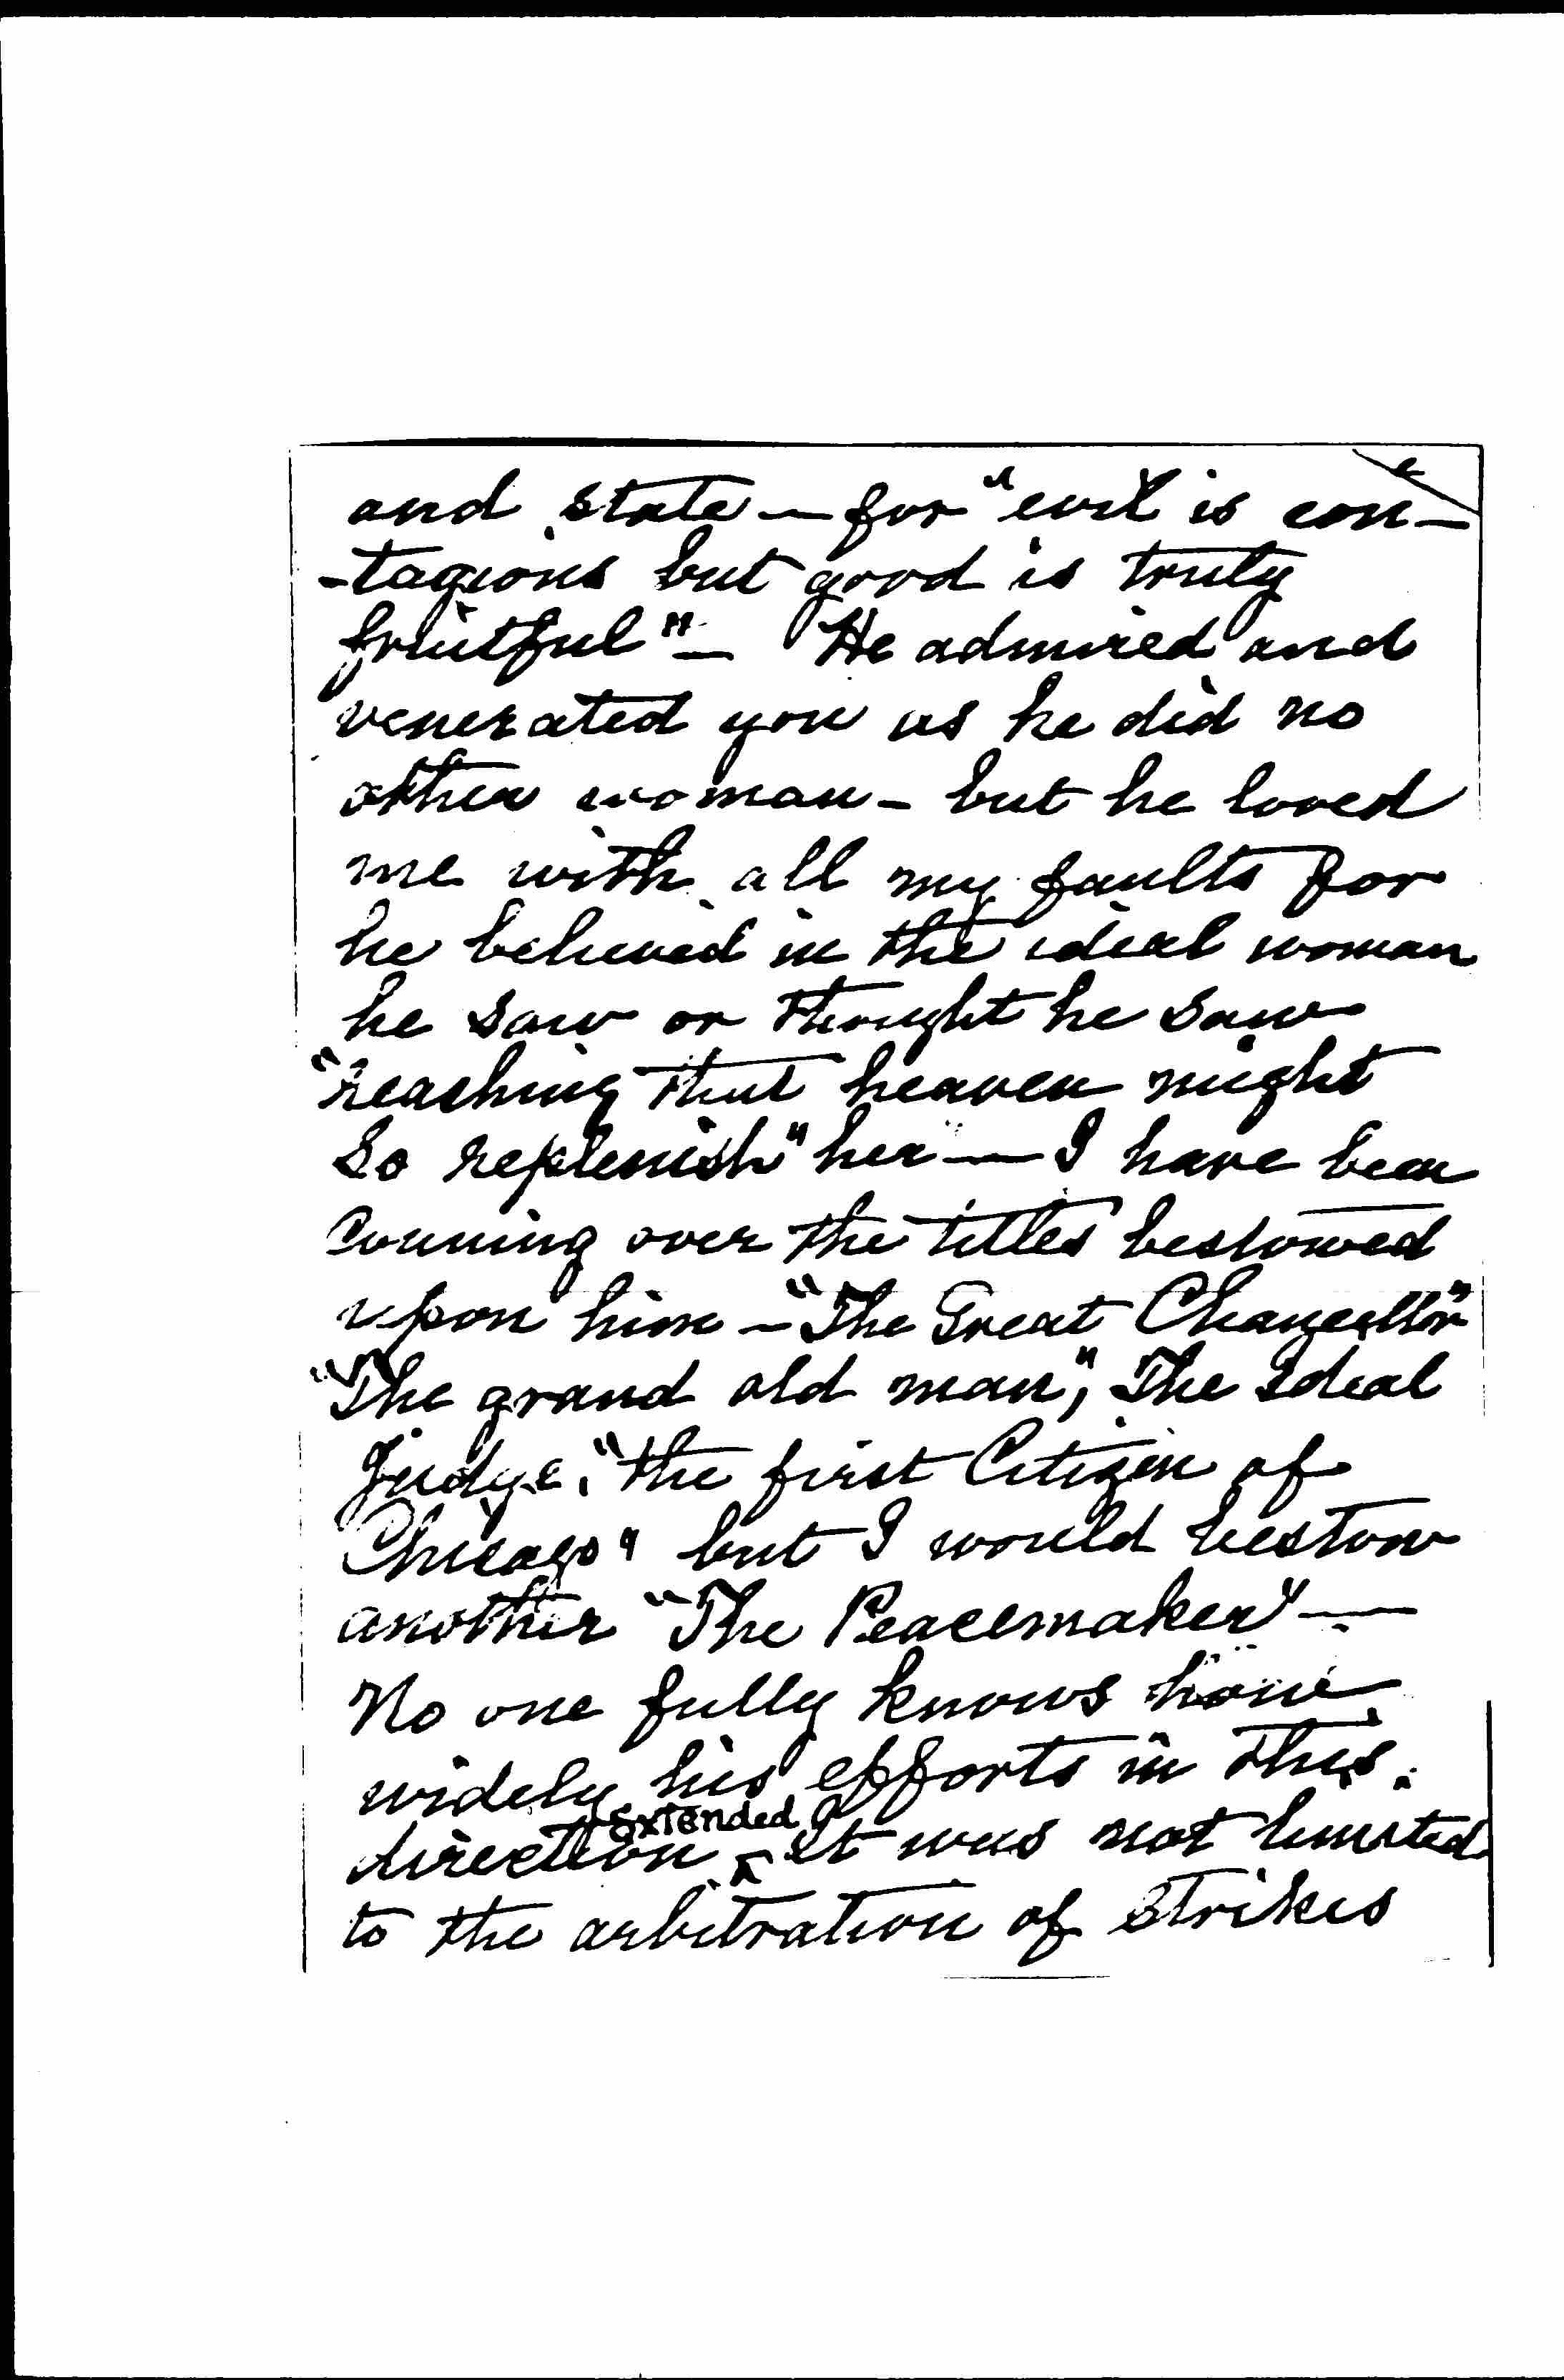 and state — for "evil is con-
-tagious but good is truly
fruitful" — He admired and
venerated you as he did no
other woman - but he loved
me with all my faults for
he believed in the ideal woman
he saw or thought he saw
"reaching that heaven might
so replenish" her — I have been
conning over the titles bestowed
upon him - "The Great Chancellor"
"The grand old man", The Ideal
Judge, "the first Citizen of
Chicago" but I would bestow
another "The Peacemaker" —
No one fully knows how
widely his efforts in this
extended
direction ^ It was not limited
to the arbitration of strikes